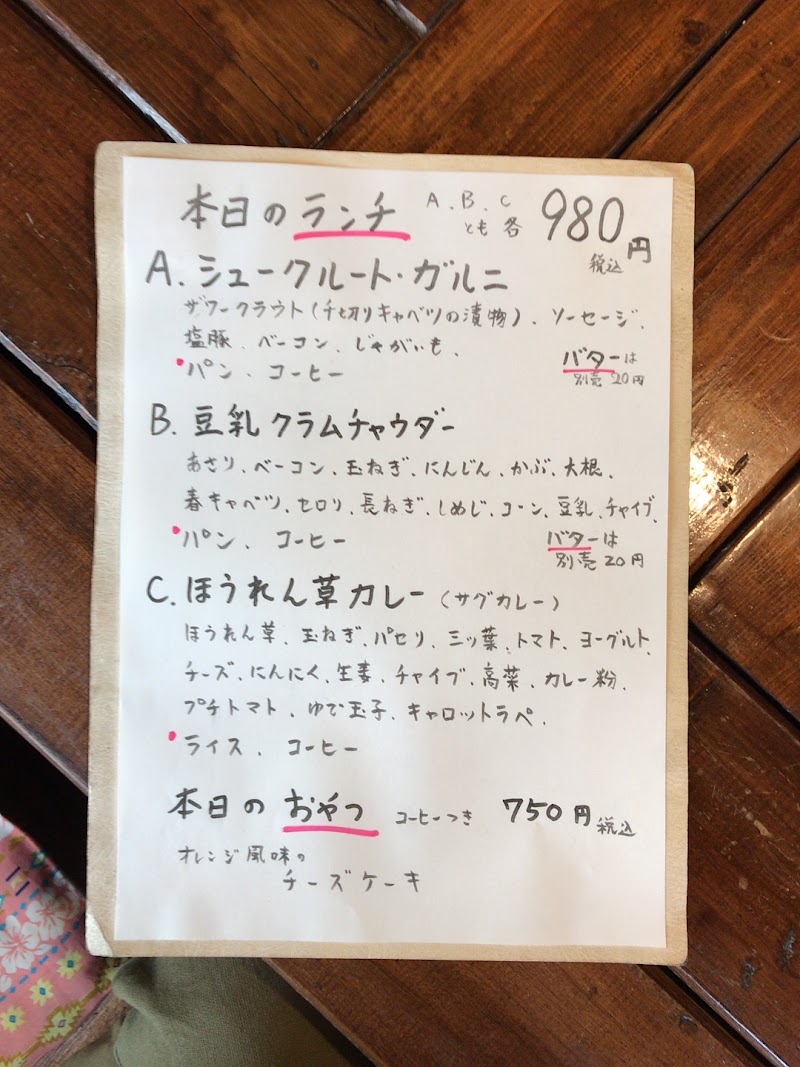 本日のランチ A.B.C とも各 980円 税込
A. シュークルート・ガルニ
ザワークラウト(千切りキャベツの漬物)、ソーセージ、
塩豚、ベーコン、じゃがいも、
・パン、コーヒー
バターは
別売 20円
B. 豆乳クラムチャウダー
あさり、ベーコン、玉ねぎ、にんじん、かぶ、大根、
春キャベツ、セロリ、長ねぎ、しめじ、コーン、豆乳、チャイブ、
・パン、コーヒー
バターは
別売 20円
C. ほうれん草カレー(サグカレー)
ほうれん草、玉ねぎ、パセリ、三ッ葉、トマト、ヨーグルト、
チーズ、にんにく、生姜、チャイブ、高菜、カレー粉、
プチトマト、ゆで玉子、キャロットラペ、
・ライス、コーヒー
本日のおやつ コーヒーつき 750円 税込
オレンジ風味の
チーズケーキ